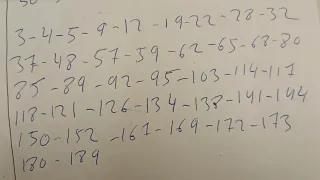 3-4-5-9-12-19-22-28-32
37-48-57-59-62-65-68-80
85-89-92-95-103-114-117
118-121-126-134-138-141-144
150-152-161-169-172-173
180-189